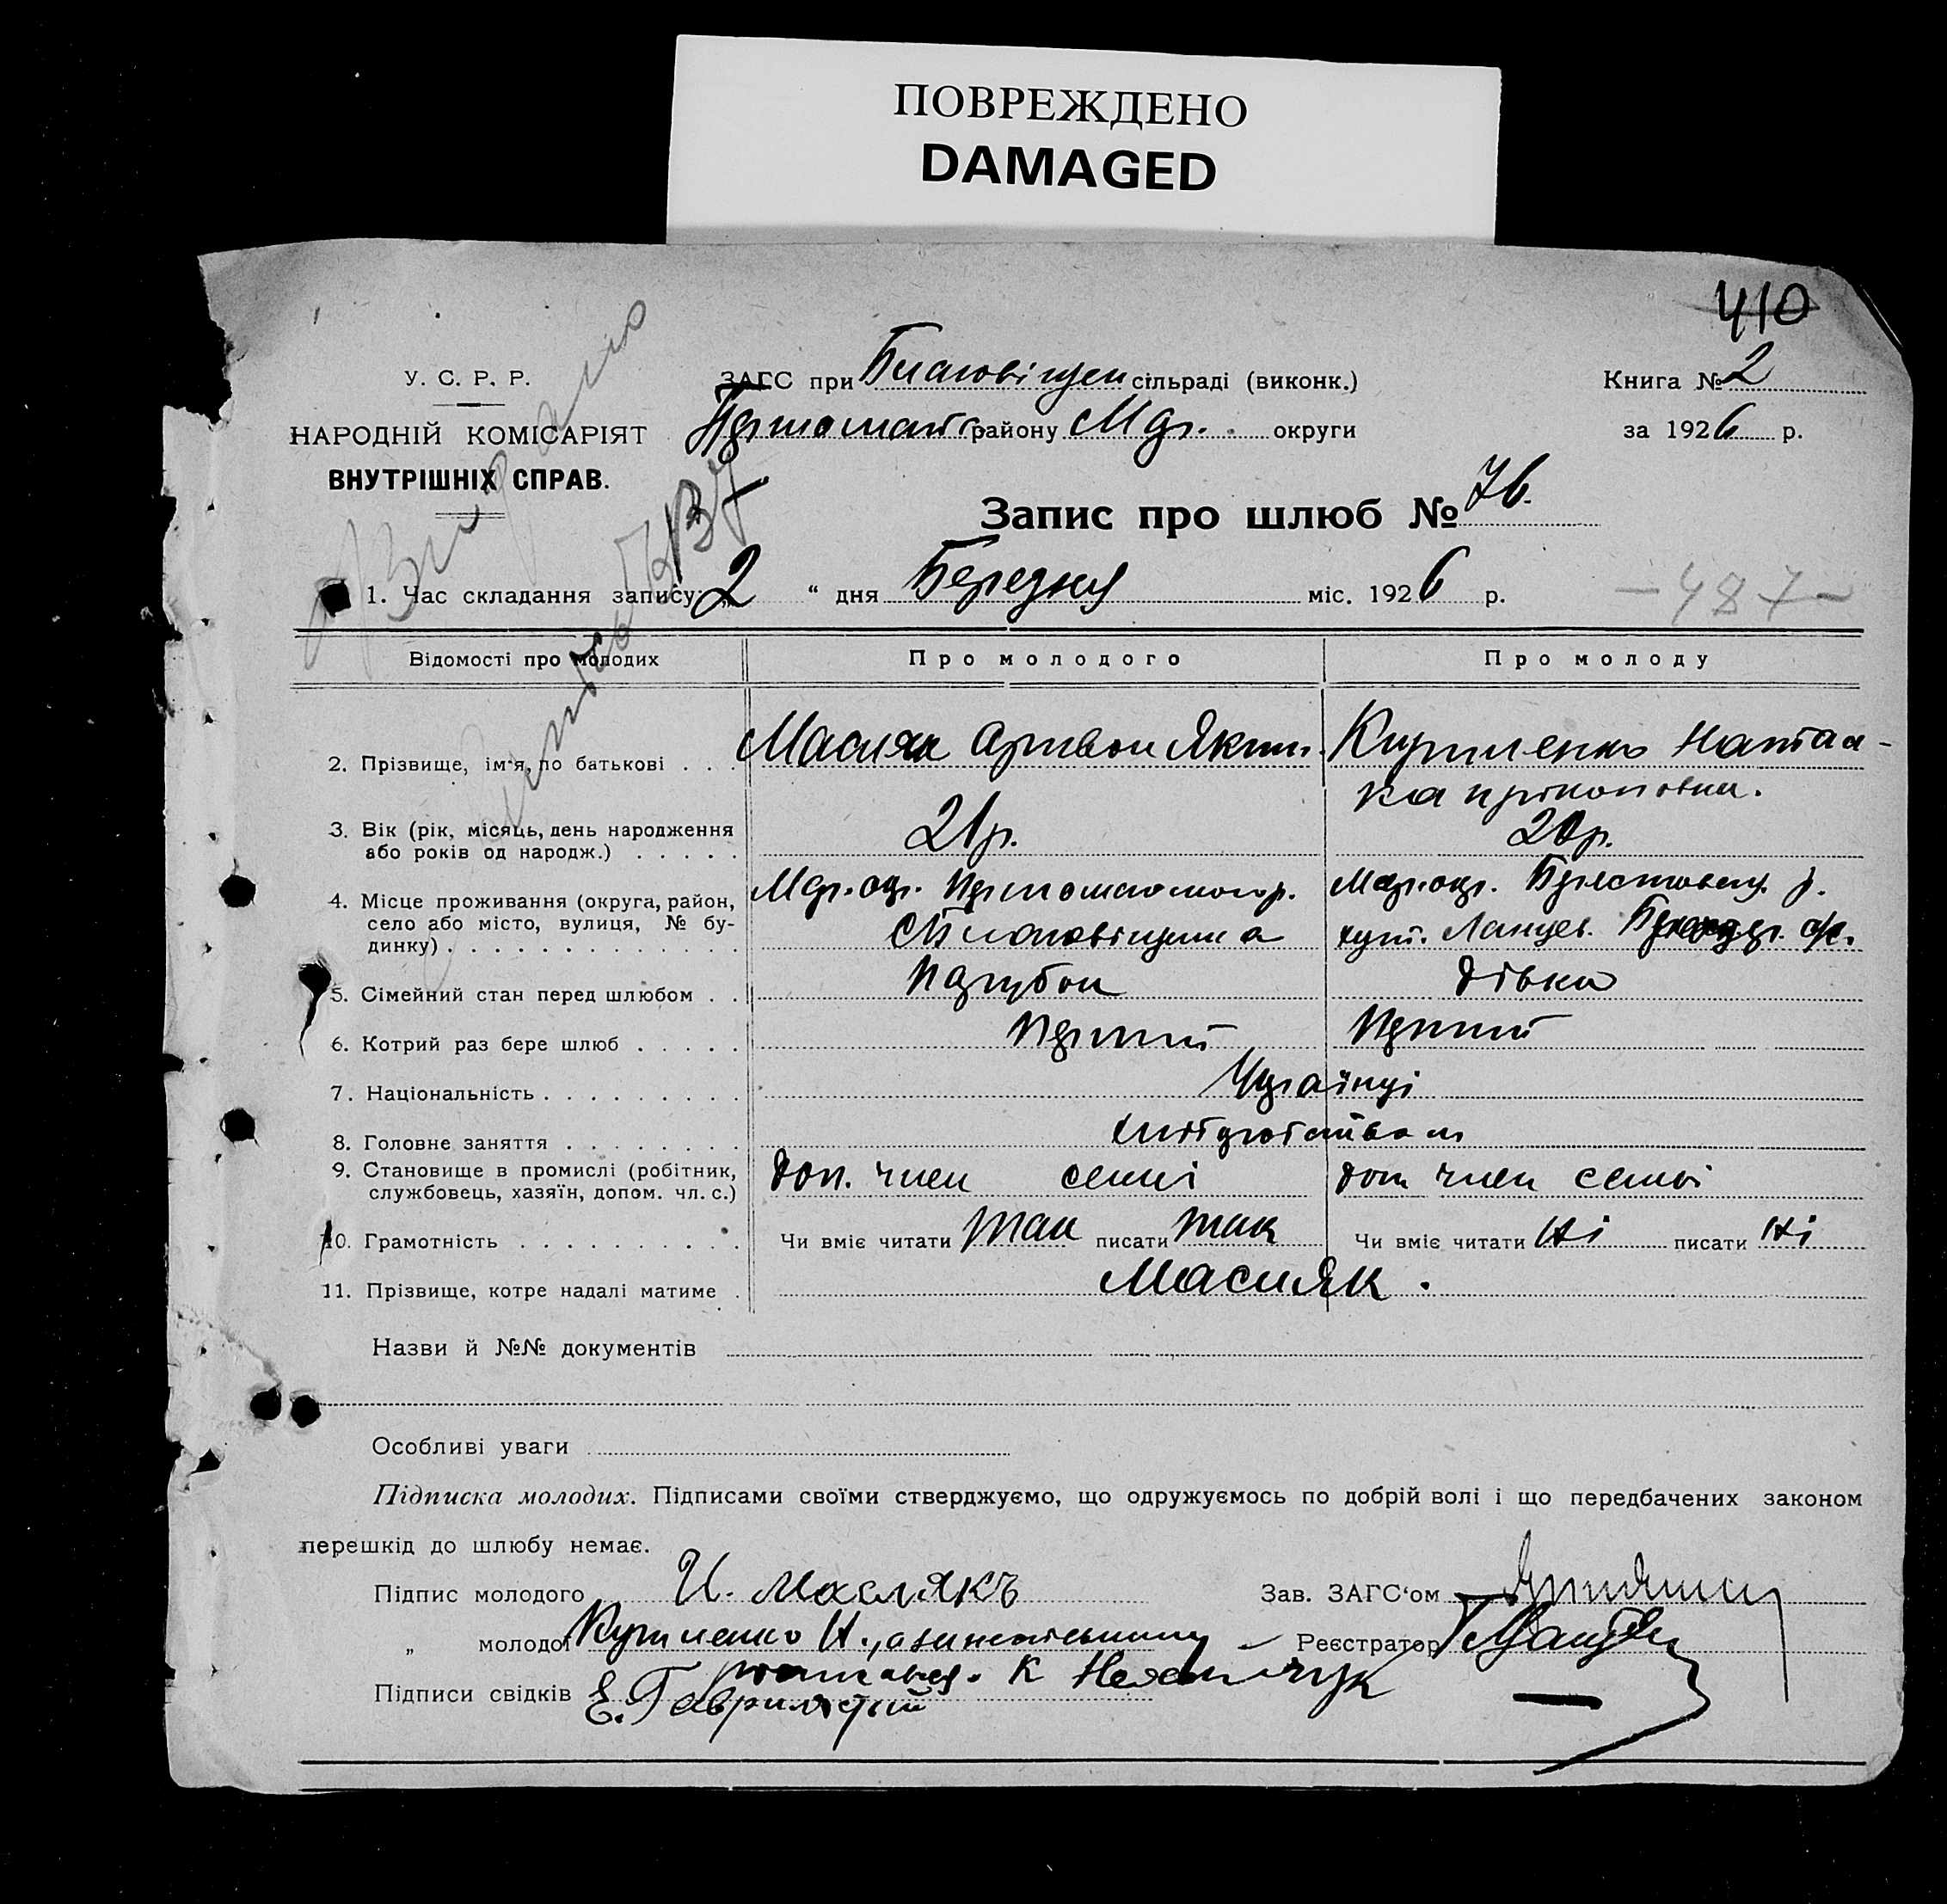 ПОВРЕЖДЕНО
DAMAGED
410
У. С. Р. Р.
НАРОДНІЙ КОМІСАРІЯТ
ВНУТРІШНІХ СПРАВ.
ЗАГС при Благовіщен сільраді (виконк.)
Книга № 2
району М др. округи
за 1926 р.
Запис про шлюб № 76.
1. Час складання запису „2“ дня Березня міс. 1926 р.
-487-
Відомості про молодих
Про молодого
Про молоду
2. Прізвище, ім'я, по батькові . . .
Масляк Яким.
Кириленко Натал-
ка Прокоповна.
3. Вік (рік, місяць, день народження
або років од народж.) . . . . .
21р.
20р.
4. Місце проживання (округа, район,
село або місто, вулиця, № бу-
динку) . . . . . . . . . . . . .
С Благовіщенка
хут.
5. Сімейний стан перед шлюбом . .
Парубок
дівка
6. Котрий раз бере шлюб . . . . .
Перший
Перший
7. Національність . . . . . . . . .
Українці
8. Головне заняття . . . . . . . .
хліборобством
9. Становище в промислі (робітник,
службовець, хазяїн, допом. чл. с.)
доп. член семьі
доп член семьі
10. Грамотність . . . . . . . . . .
Чи вміє читати так писати так
Чи вміє читати Ні писати Ні
11. Прізвище, котре надалі матиме .
Масляк.
Назви й №№ документів
Особливі уваги
Підписка молодих. Підписами своїми стверджуємо, що одружуємось по добрій волі і що передбачених законом
перешкід до шлюбу немає.
Підпис молодого И. Маслякъ
Зав. ЗАГС'ом
„ молодої Кириленко Н.,
Реєстратор
Підписи свідків Е.